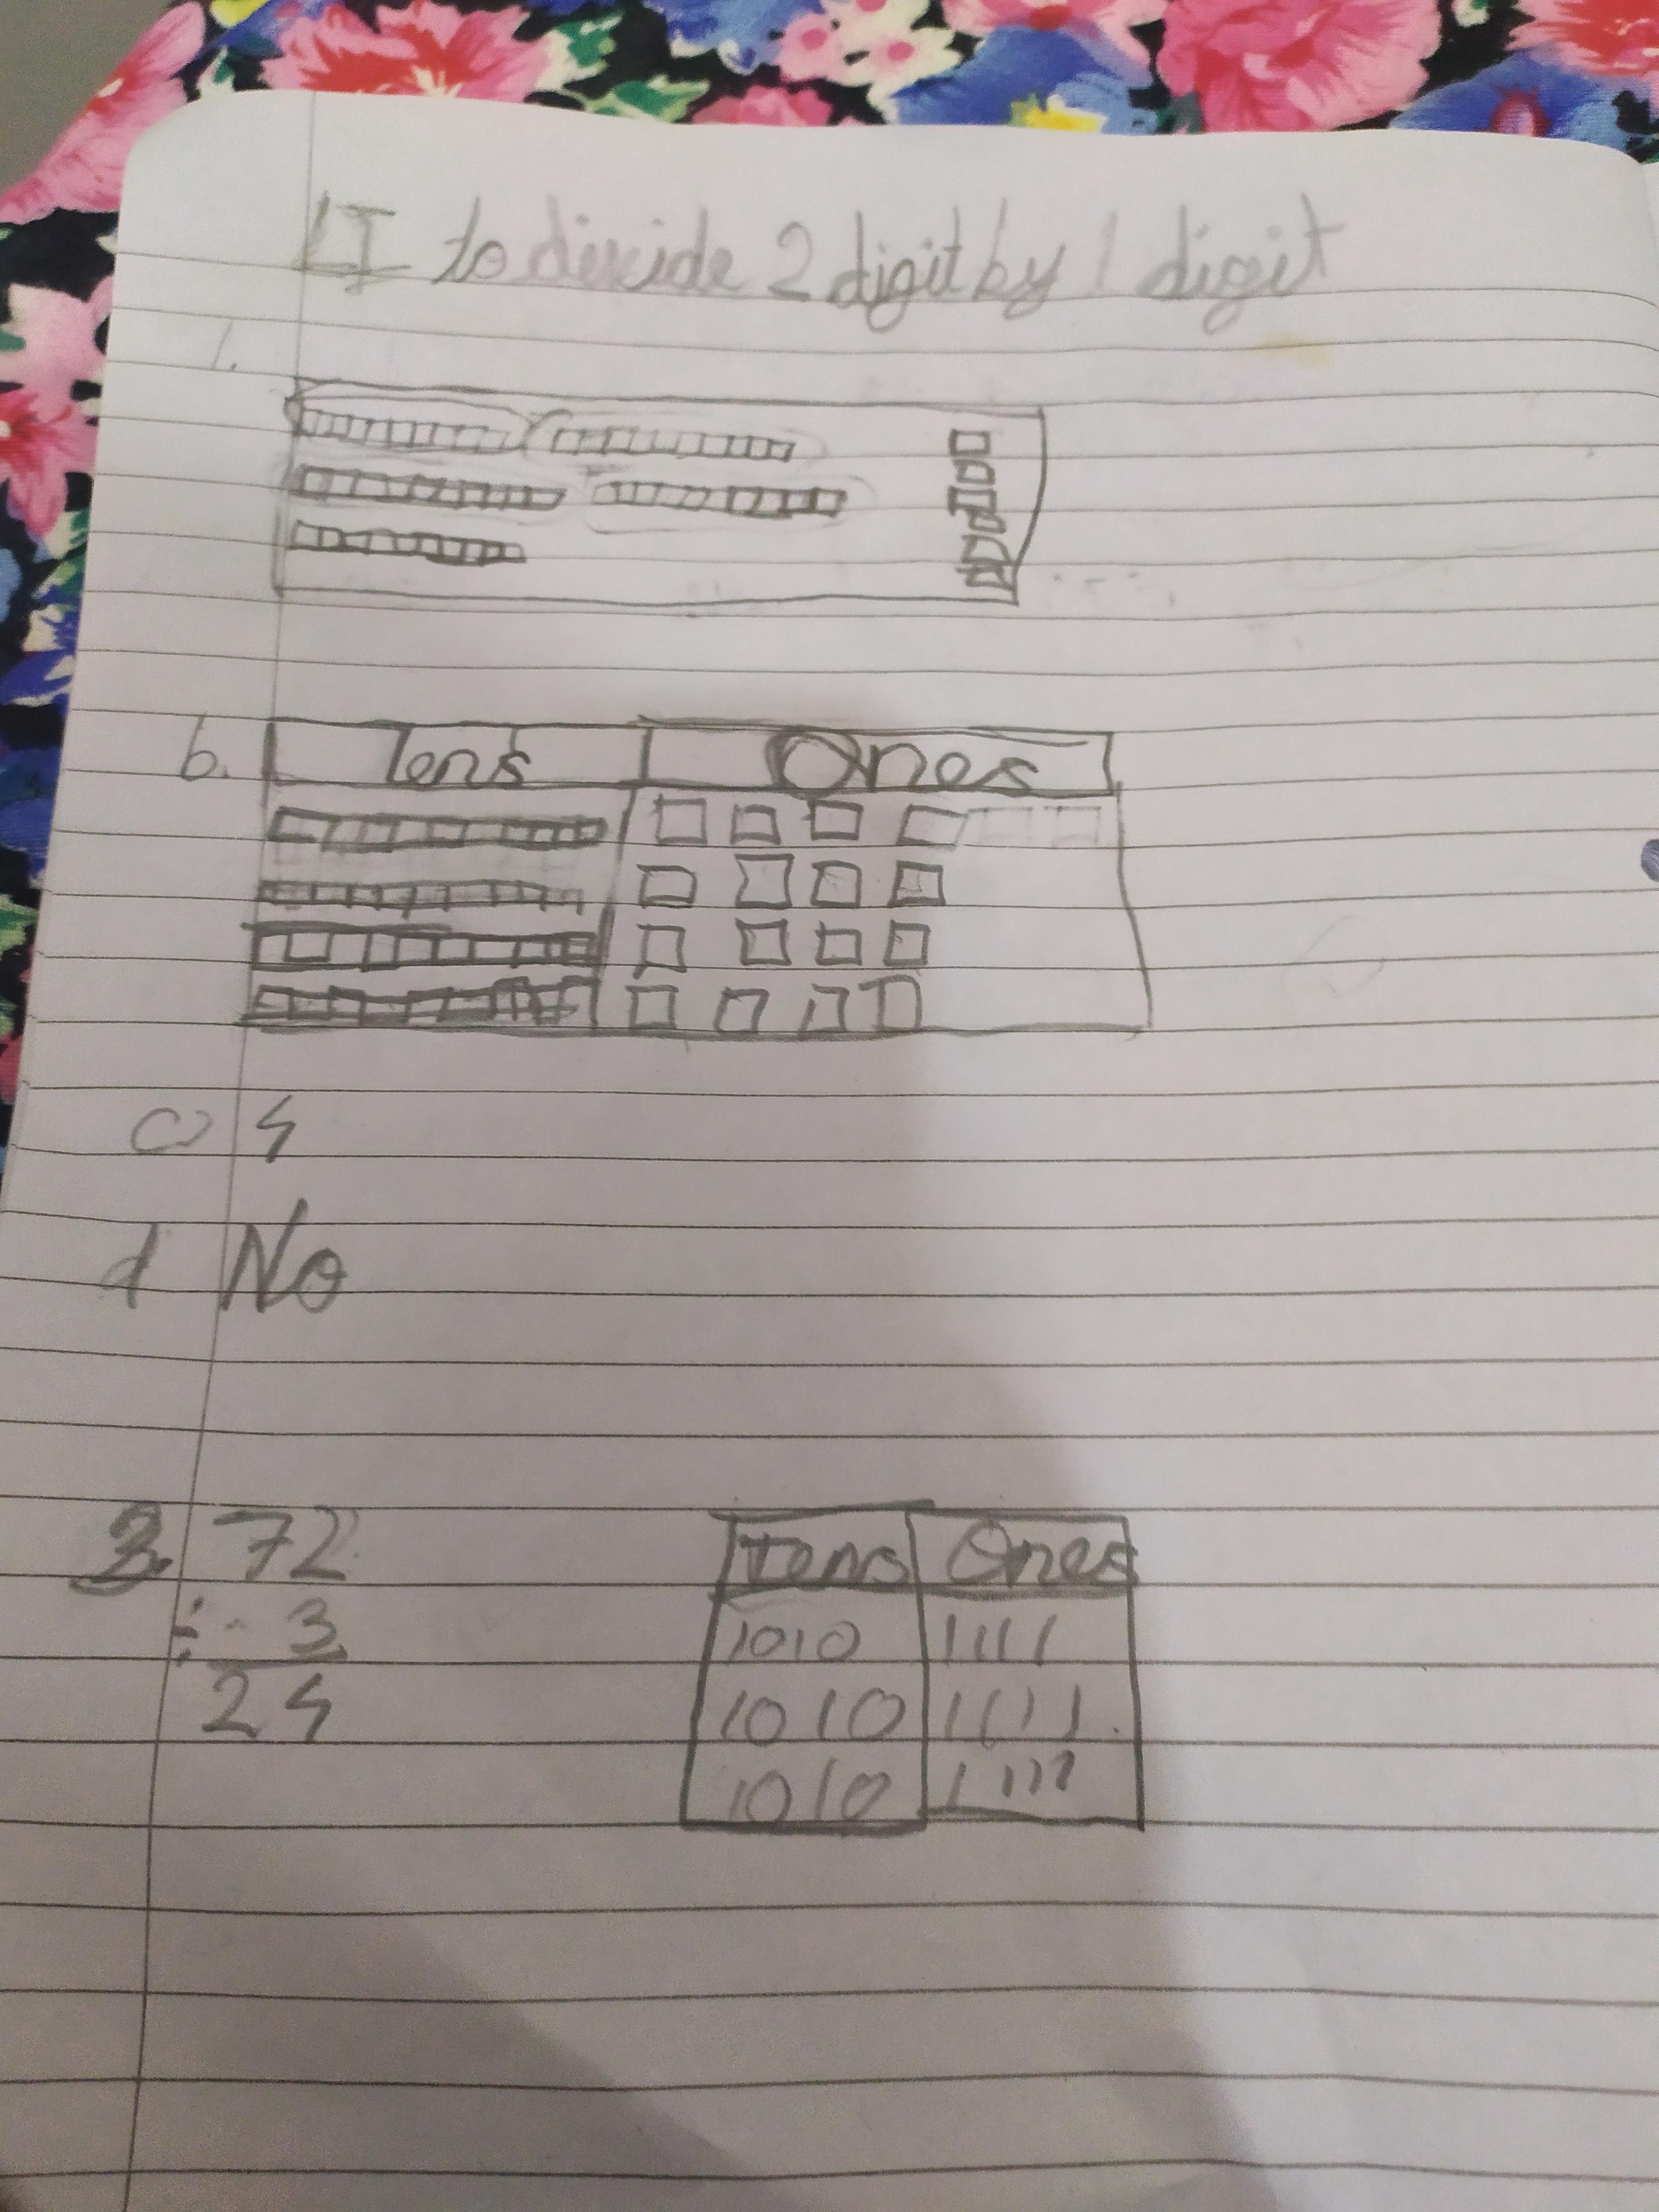 LI to divide 2 digit by 1 digit
1.
b. Tens Ones
c) 4
d No
3. 72
÷ 3
24
Tens Ones
10 10 1 1 1 1
10 10 1 1 1 1
10 10 1 1 1 1